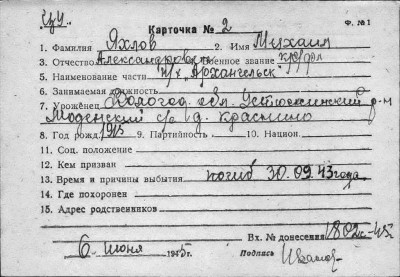 Ф. №1
Карточка № 2
1. Фамилия Яхлов 2. Имя Михаил
3. Отчество Александрович Военное звание
5. Наименование части п/х "Архангельск"
6. Занимаемая должность
7. Уроженец Вологод. обл. Устюженский р-н
Моденский с/с д. Красино
8. Год рожд. 1915 9. Партийность 10. Национ.
11. Соц. положение
12. Кем призван
13. Время и причины выбытия погиб 30.09.43 года
14. Где похоронен
15. Адрес родственников
Вх. № донесения 1802с-45
6 июня 1945г. Подпись